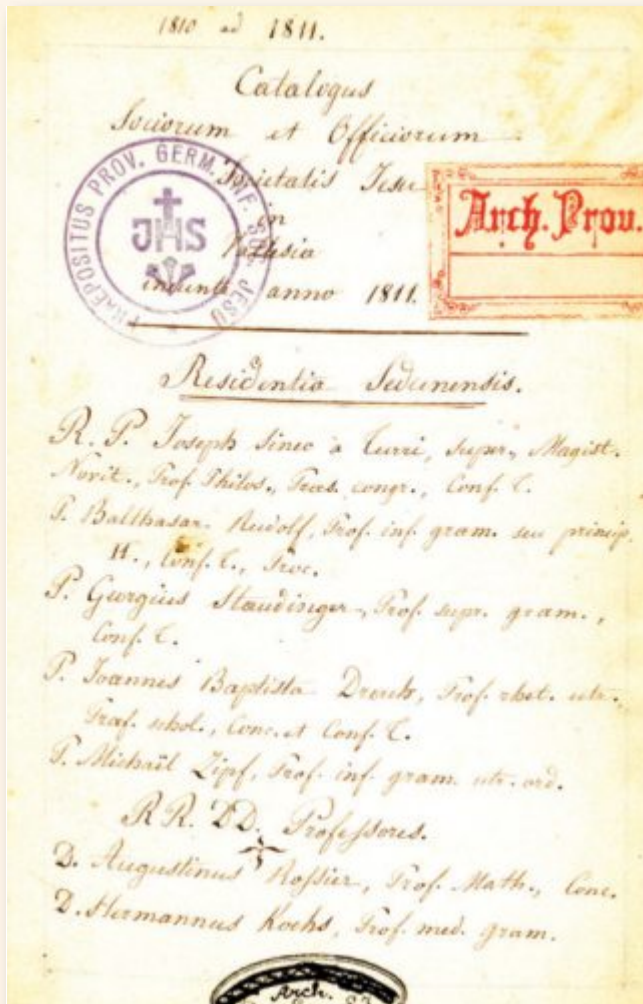 1810 ad 1811.
Catalogus
Sociorum et Officiorum
Societatis Jesu
in
ineunte anno 1811.
PRAEPOSITUS PROV. GERM. INF. SOC. JESU
JHS
Arch. Prov.
Residentia Sedunensis.
R. P. Joseph Sineo à Turri, super., Magist.
Novit., Prof. Philos., Praes. congr., Conf. T.
P. Balthasar Rudolf, Prof. inf. gram. seu princip.
H., Conf. T., Proc.
P. Georgius Staudinger, Prof. supr. gram.,
Conf. T.
P. Joannes Baptista Prof. rhet. utr.,
Praef. schol., Conc. et Conf. T.
P. Michaël Zipf, Prof. inf. gram. utr. ord.
RR. DD. Professores.
D. Augustinus Rossier, Prof. Math., Conc.
D. Hermannus Kochs, Prof. med. gram.
Arch.